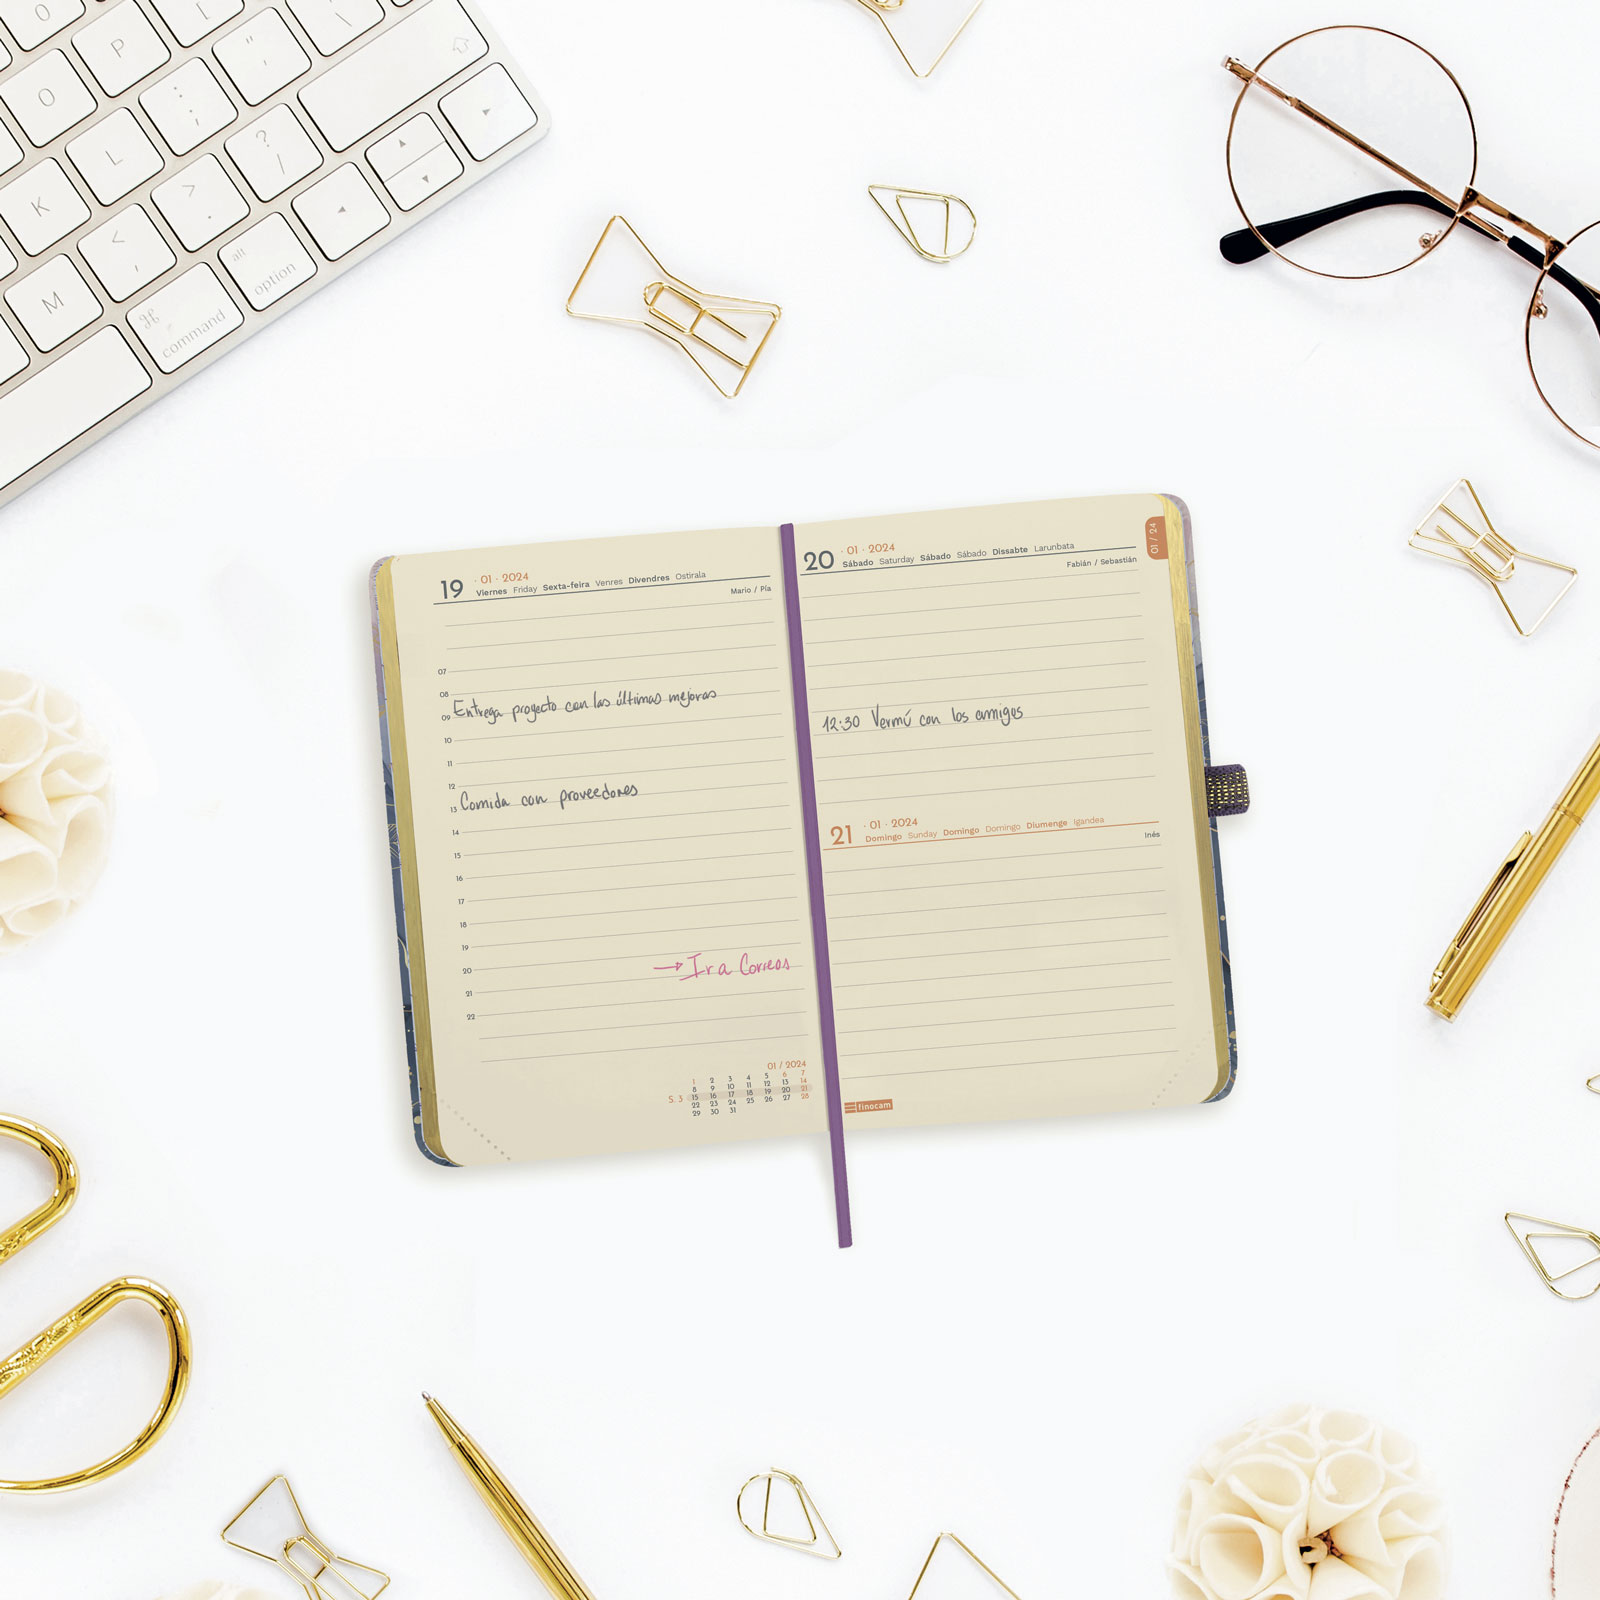 P
O
L
K
M
: ;
" '
> .
< ,
? /
alt
option
⌘
command
19 · 01 · 2024
Viernes Friday Sexta-feira Venres Divendres Ostirala
Mario / Pía
07
08
09 Entrega proyecto con las últimas mejoras
10
11
12
13 Comida con proveedores
14
15
16
17
18
19
20 → Ir a Correos
21
22
01 / 2024
1 2 3 4 5 6 7
8 9 10 11 12 13 14
S. 3 15 16 17 18 19 20 21
22 23 24 25 26 27 28
29 30 31
01 / 24
20 · 01 · 2024
Sábado Saturday Sábado Sábado Dissabte Larunbata
Fabián / Sebastián
12:30 Vermú con los amigos
21 · 01 · 2024
Domingo Sunday Domingo Domingo Diumenge Igandea
Inés
finocam